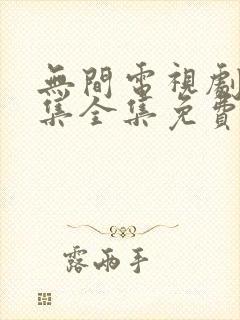 無間電視劇
集全集免費
露兩手